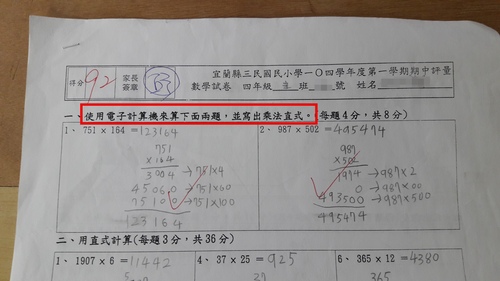 宜蘭縣三民國民小學一〇四學年度第一學期期中評量
得分 92 家長簽章
數學試卷 四年級 班 號 姓名
一、使用電子計算機來算下面兩題，並寫出乘法直式。(每題4分，共8分)
1、 751 × 164 = 123164
751
×164
3004 → 751×4
45060 → 751×60
75100 → 751×100
123164
2、 987 × 502 = 495474
987
×502
1974 → 987×2
0 → 987×00
493500 → 987×500
495474
二、用直式計算(每題3分，共36分)
1、 1907 × 6 = 11442
4、 37 × 25 = 925
6、 365 × 12 = 4380
37
365